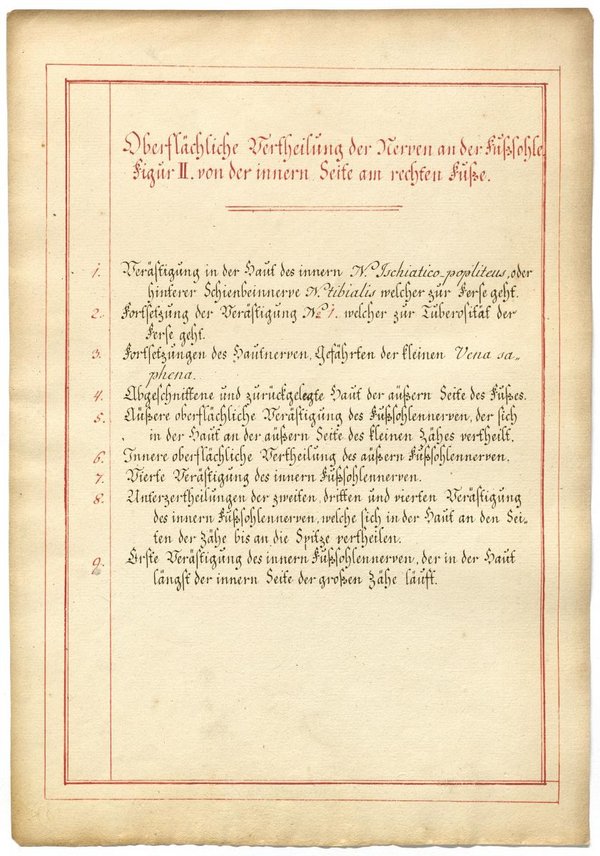 Oberflächliche Vertheilung der Nerven an der Fußsohle.
Figur II. von der innern Seite am rechten Fuße.
1. Verästigung in der Haut des innern N.º Ischiatico-popliteus, oder
hinterer Schienbeinnerve N.º tibialis welcher zur Ferse geht.
2. Fortsetzung der Verästigung Nº 1. welcher zur Tuberosität der
Ferse geht.
3. Fortsetzungen des Hautnerven, Gefährten der kleinen Vena sa-
phena.
4. Abgeschnittene und zurückgelegte Haut der äußern Seite des Fußes.
5. Äußere oberflächliche Verästigung des Fußsohlennerven, der sich
in der Haut an der äußern Seite des kleinen Zähes vertheilt.
6. Innere oberflächliche Vertheilung des äußern Fußsohlennerven.
7. Vierte Verästigung des innern Fußsohlennerven.
8. Unterzertheilungen der zweiten, dritten und vierten Verästigung
des innern Fußsohlennerven, welche sich in der Haut an den Sei-
ten der Zähe bis an die Spitze vertheilen.
9. Erste Verästigung des innern Fußsohlennerven, der in der Haut
längst der innern Seite der großen Zähe läuft.